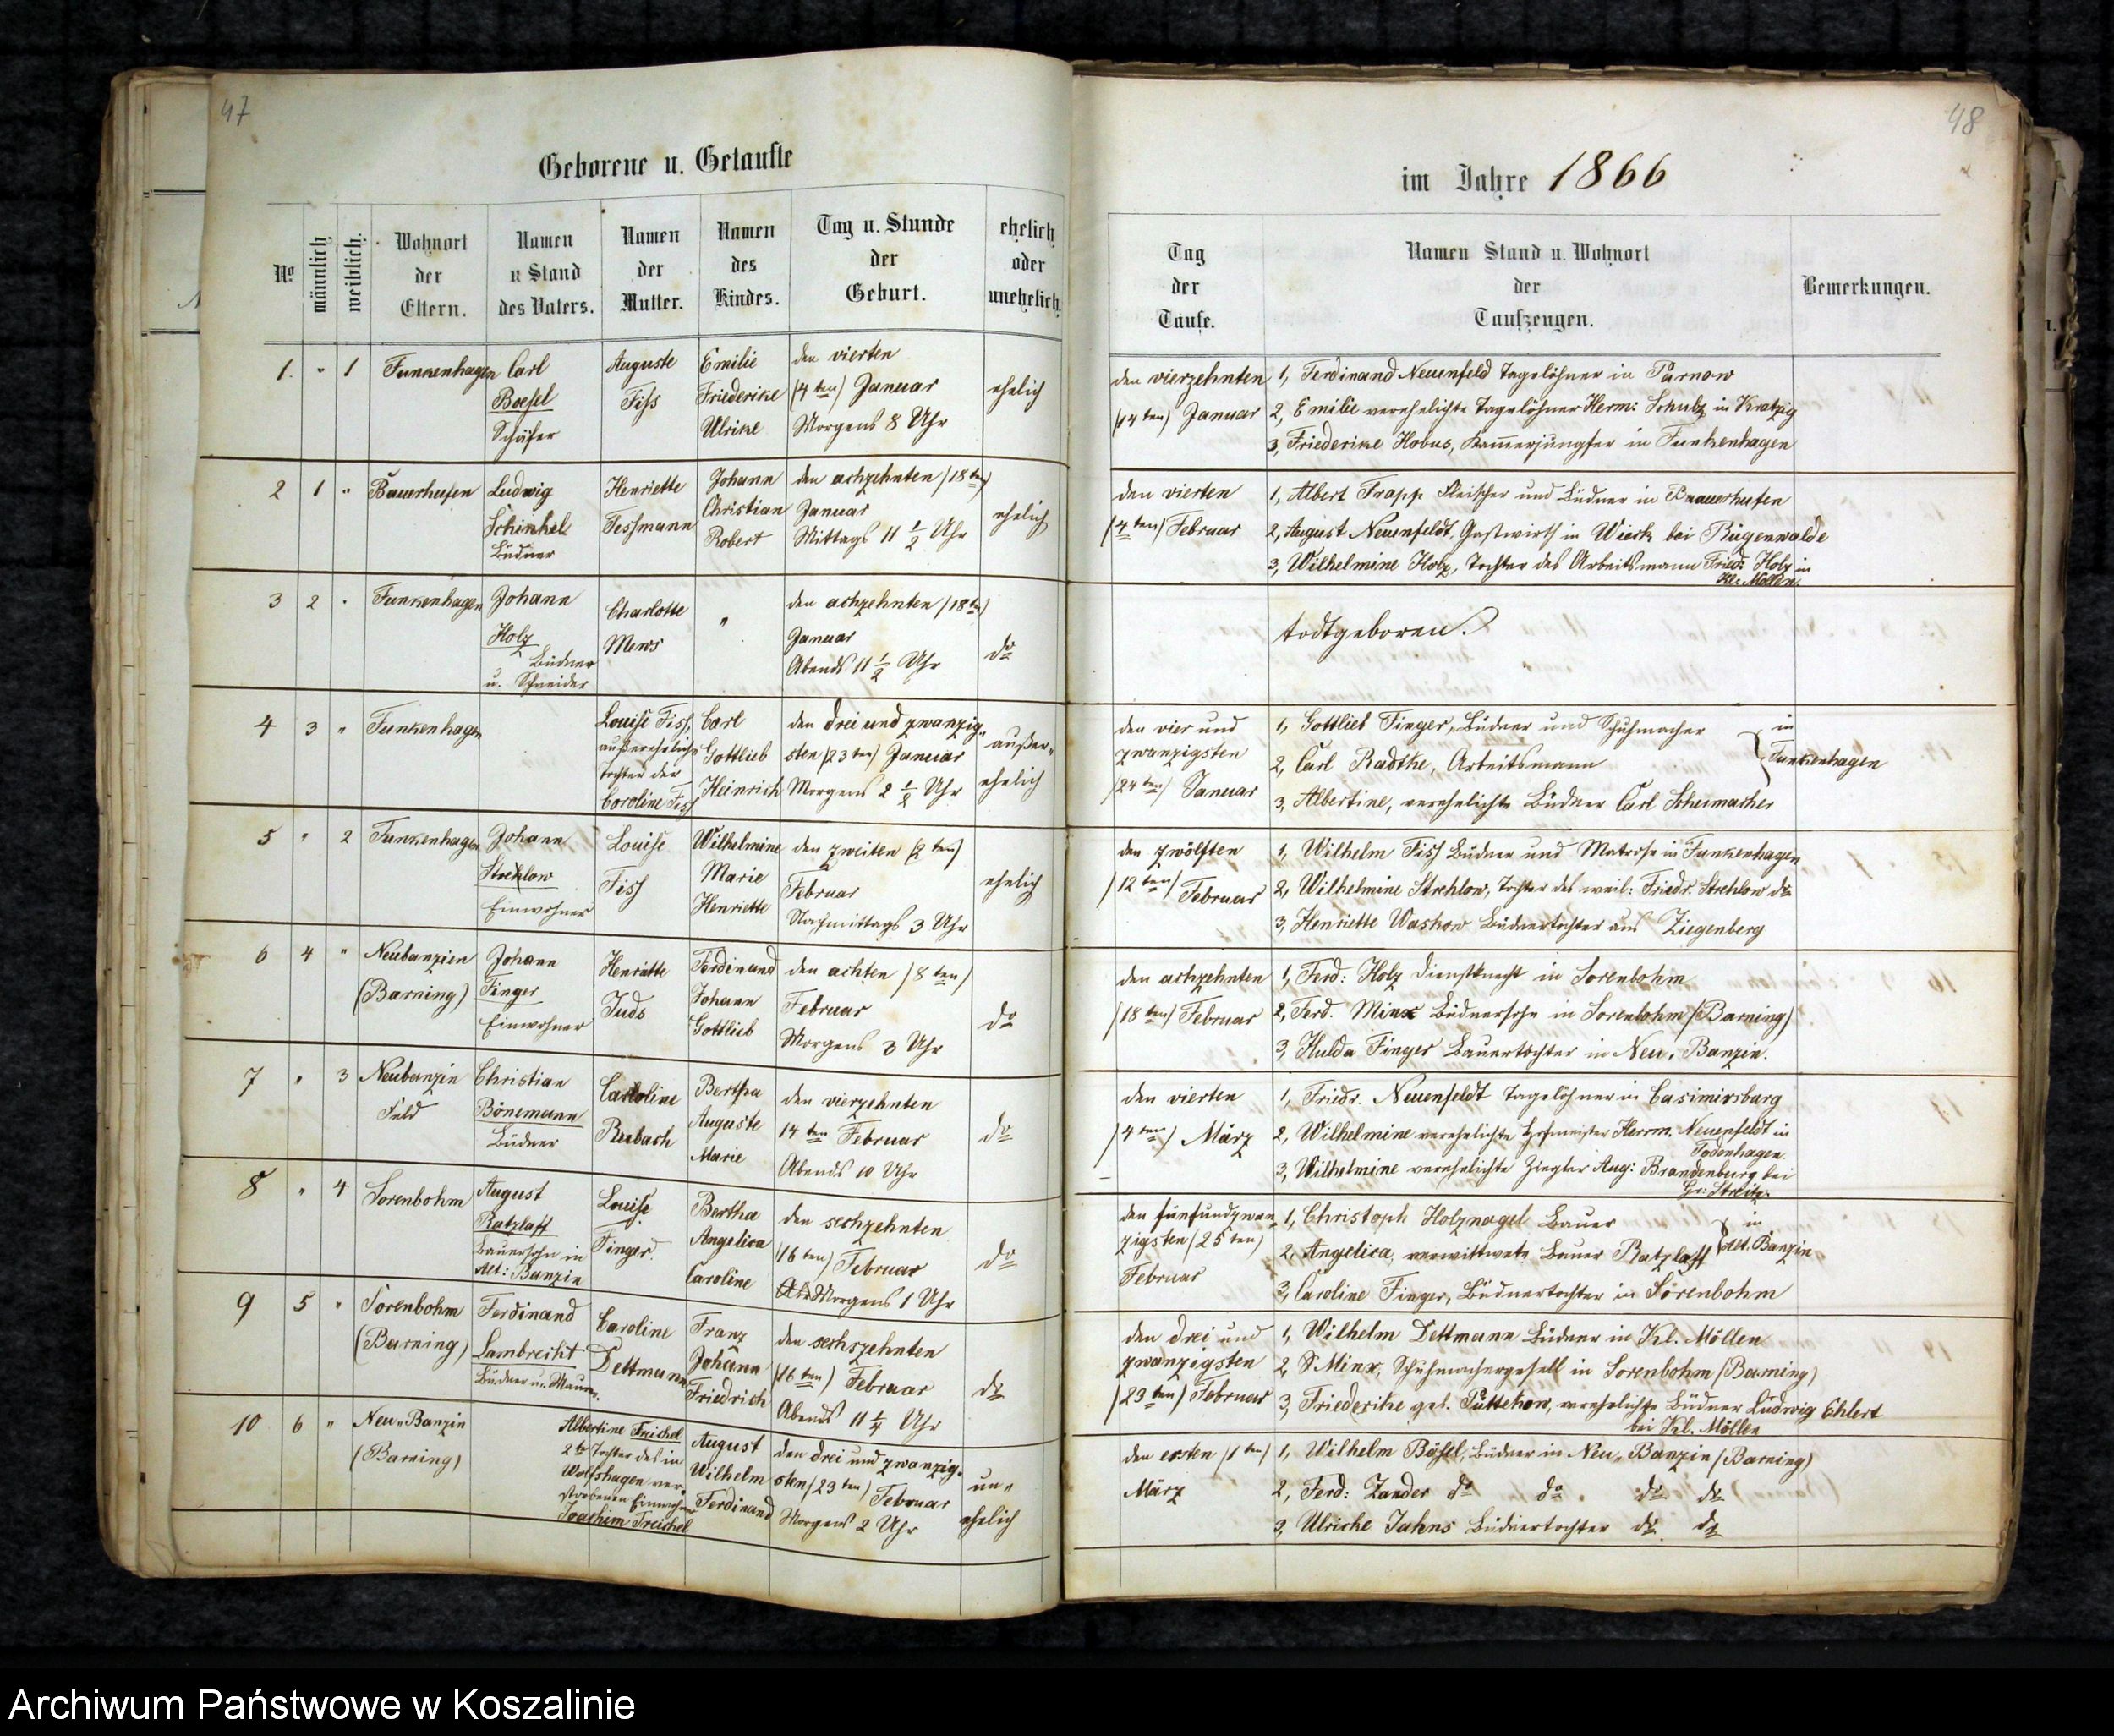 47
Geborene u. Getaufte
No
männlich
weiblich.
Wohnort
der
Eltern.
Namen
u Stand
des Vaters.
Namen
der
Mutter.
Namen
des
Kindes.
Tag u. Stunde
der
Geburt.
ehelich
oder
unehelich.
1. " 1 Funkenhagen
Carl
Boesel
Schäfer
Auguste
Fiss
Emilie
Friederike
Ulrike
den vierten
(4 ten) Januar
Morgens 8 Uhr
ehelich
2 1 " Bauerhufen
Ludwig
Schinkel
Büdner
Henriette
Tessmann
Johann
Christian
Robert
den achzehnten /18 ten/
Januar
Mittags 11 1/2 Uhr
ehelich
3 2 " Funkenhagen
Johann
Holz
Büdner
u. Schneider
Charlotte
Mews
"
den achzehnten /18 ten/
Januar
Abends 11 1/2 Uhr
do
4 3 " Funkenhagen
Louise Fiss,
außereheliche
Tochter der
Caroline Fiss
Carl
Gottlieb
Heinrich
den drei und zwanzig„
sten /23 ten/ Januar
Morgens 2 1/2 Uhr
außer„
ehelich
5 " 2 Funkenhagen
Johann
Strehlow
Einwohner
Louise
Fiss
Wilhelmine
Marie
Henriette
den zweiten (2 ten)
Februar
Nachmittags 3 Uhr
ehelich
6 4 " Neubanzien
(Barning)
Johann
Finger
Einwohner
Henriette
Juds
Ferdinand
Johann
Gottlieb
den achten /8 ten/
Februar
Morgens 3 Uhr
do
7 " 3 Neubanzin
Feld
Christian
Bönemann
Büdner
Caroline
Rubach
Bertha
Auguste
Marie
den vierzehnten
14 ten Februar
Abends 10 Uhr
do
8 " 4 Sorenbohm
August
Ratzlaff
Bauersohn in
Alt: Banzin
Louise
Finger
Bertha
Angelica
Caroline
den sechzehnten
/16 ten) Februar
Morgens 1 Uhr
do
9 5 " Sorenbohm
(Barning)
Ferdinand
Lambrecht
Büdner u. Maurer
Caroline
Dettmann
Franz
Johann
Friedrich
den sechszehnten
/16 ten) Februar
Abends 11 1/4 Uhr
do
10 6 " Neu„Banzin
(Barning)
Albertine Treichel
2te Tochter des in
Wolfshagen ver„
storbenen Einwohner
Joachim Treichel
August
Wilhelm
Ferdinand
den drei und zwanzig„
sten /23 ten) Februar
Morgens 2 Uhr
un„
ehelich
48
im Jahre 1866
Tag
der
Taufe.
Namen Stand u. Wohnort
der
Taufzeugen.
Bemerkungen.
den vierzehnten
/14 ten) Januar
1, Ferdinand Neuenfeld Tagelöhner in Parnow
2, Emilie verehelichte Tagelöhner Herm: Schulz in Kratzig
3, Friederike Hobus, Kammerjungfer in Funkenhagen
den vierten
/4 ten/ Februar
1, Albert Trapp Fleischer und Büdner in Bauerhufen
2, August Neuenfeldt, Gastwirth in Wieck bei Rügenwalde
3, Wilhelmine Holz, Tochter des Arbeitsmann Fried: Holz in
Kl: Möllen
todtgeboren.
den vier und
zwanzigsten
/24 ten/ Januar
1, Gottlieb Finger, Büdner und Schuhmacher
2, Carl Radtke, Arbeitsmann
3, Albertine, verehelichte Büdner Carl Schumacher
in
Funkenhagen
den zwölften
/12 ten/ Februar
1, Wilhelm Fiss Büdner und Matrose in Funkenhagen
2, Wilhelmine Strehlow, Tochter des weil: Friedr. Strehlow do
3, Henriette Waskow Büdnertochter aus Ziegenberg
den achzehnten
/18 ten/ Februar
1, Ferd: Holz Dienstknecht in Sorenbohm
2, Ferd. Minx Büdnersohn in Sorenbohm /Barning)
3, Hulda Finger Bauertochter in Neu„ Banzin.
den vierten
/4 ten/ März
1, Friedr. Neuenfeldt Tagelöhner in Casimirsburg
2, Wilhelmine verehelichte Hofmeister Herrm. Neuenfeldt in
Todenhagen.
3, Wilhelmine verehelichte Ziegler Aug: Brandenburg bei
Gr: Streitz.
den fünfundzwan„
zigsten /25 ten)
Februar
1, Christoph Holznagel Bauer
2, Angelica, verwittwete Bauer Ratzlaff
in
Alt. Banzin
3, Caroline Finger, Büdnertochter in Sorenbohm
den drei und
zwanzigsten
/23 ten) Februar
1, Wilhelm Dettmann Büdner in Kl. Möllen
2, Minx, Schuhmachergesell in Sorenbohm /Barning)
3, Friederike geb. Püttckow, verehelichte Büdner Ludwig Ehlert
bei Kl. Möllen
den ersten /1 ten/
März
1, Wilhelm Bösel, Büdner in Neu„ Banzin /Barning)
2, Ferd: Zander do do do do
3, Ulricke Jahns Büdnertochter do do
Archiwum Państwowe w Koszalinie